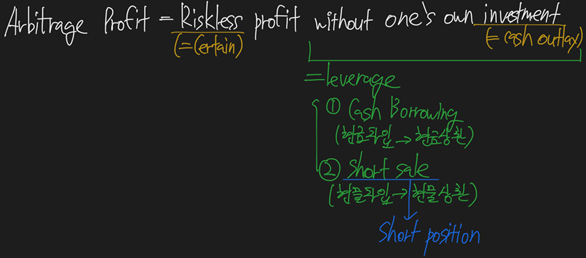 Arbitrage Profit = Riskless profit without one's own investment
(=Certain) (= cash outlay)
= leverage
① Cash Borrowing
(현금차입 → 현금상환)
② Short sale
(현물차입 → 현물상환)
Short position